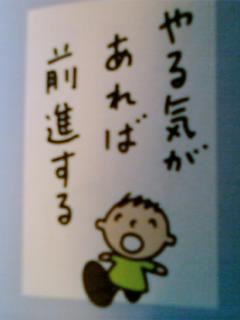 やる気が
あれば
前進する